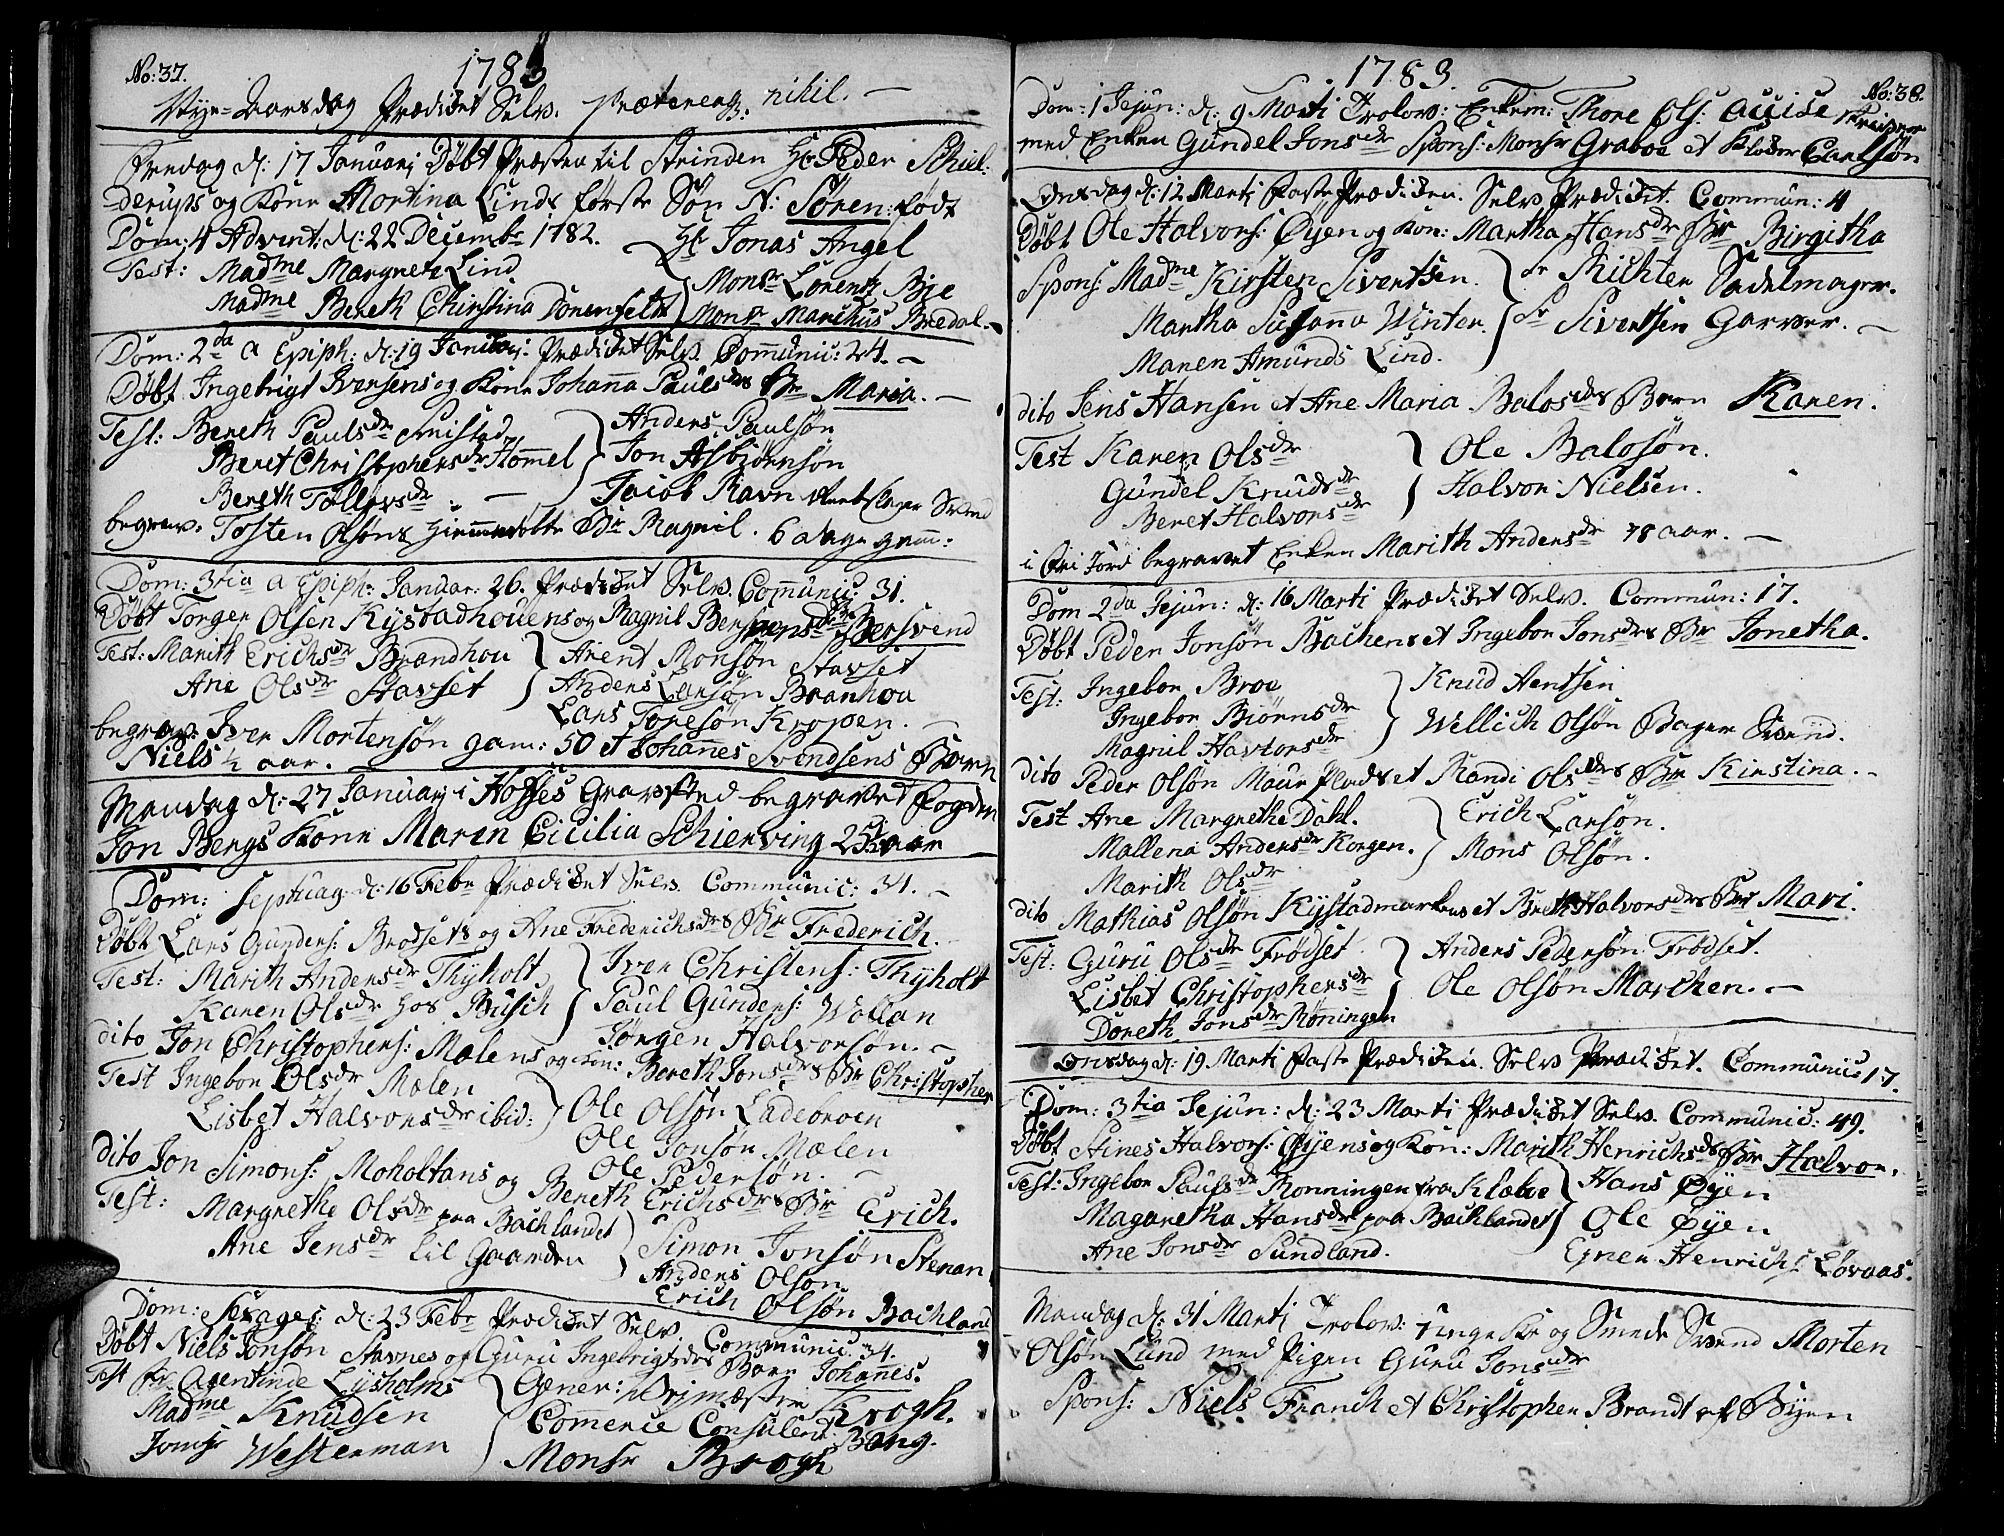 No: 37.
1783
Nye-Aarsdag Prædiket Selv. prætereaq: nihil. —
Fredag d: 17 Januarj Døbt Præsten til Strinden Hr Peder Schiel-
derups og Kone Mortina Linds første Søn N: Sören: født
Dom: 4 Advent: d: 22 Decembr 1782. — Hr Jonas Angel
Test: Madme Margrete Lind
Monsr Lorentz Bye
Madme Bereth Christina Dönenfeldt Monsr Marchus Bredal. —
Dom: 2da a Epiph: d: 19 Januarj. Prædiket Selv. Com̄unic: 24. —
Døbt Ingebrigt Iversens og Kone Johan̄a Paulsdrs Br Maria. —
Test: Bereth Paulsdr Smistad
Anders Paulsön
Beret Christophersdr Hom̄el Jon Asbiörnsön
Bereth Tollevsdr. — Jacob Ravn Svend
begrav. Tosten Olsöns Br Magnil. 6 dage gam̄:
Dom: 3tia a Epiph: Januar: 26. Prædiket Selv. Com̄unic: 31.
Døbt Torger Olsen Kystadhouens og Magnil Br Bersvend
Test: Marith Erichsdr Brandhou Arent Monsön Stavset
Ane Olsdr Stavset Anders Larsön Branhou
Lars Topesön Kroppen. —
begrav: Iver Mortensön gam: 50 et Johan̄es Svendsens Barn
Niels ½ aar.
Mandag d: 27 Januarj i Hoffes Gravsted begravet fogden
Jon Bergs Kone Maren Cicilia Schierving 25 aar
Dom: Septuag: d: 16 Febr Prædiket Selv. Communic: 34. —
Døbt Lars Gunders: Brodsets og Ane Frederichsdrs Br Frederich. —
Test: Marith Andersdr Thyholt Iver Christens: Thyholt
Karen Olsdr hos Busch Paul Gunders: Wollan
Jörgen Halvorsön. —
dito Jon Christophers: Mælens og Kon: Bereth Jonsdrs Br Christopher
Test Ingebor Olsdr Mælen
Lisbet Halvorsdr ibid: Ole Olsön Ladebroen
Ole Jonsön Mælen
Ole Pedersön. —
dito Jon Simons: Moholtans og Bereth Erichsdrs Br Erich.
Test: Margrethe Olsdr paa Bachlandet
Ane Jensdr Lil Gaarden Simon Jonsön Stenan
Anders Olsön
Erich Olsön Bachland
Dom: Sexages: d: 23 Febr Prædiket Selv. Communic: 34.
Døbt Niels Jonsön Stavnes og Guru Ingebrigtsdrs Barn Johan̄es.
Test Fr Agentinde Lysholms Gener: Krogh.
Madme Knudsen Com̄erce Consulent Bang.
Jomfr Westerman Monsr Brogh
No: 38.
1783.
Dom: 1 Jejun: d: 9 Marti Trolov: Enkem: Thore Ols: Accise
med Enken Gundel Jonsdr Spons: Monsr Graboe et Carlsön
Onsdag d: 12 Marti Faste Prædiken. Selv Prædiket. Commun: 4
Døbt Ole Halvors: Øyen og Kon: Martha Hansdr Br Birgitha
Spons: Madme Kirsten Sivertsen. Sr Richter Sadelmager.
Martha Susanna Winter. Sr Sivertsen Garver. —
Maren Amunds Lind.
dito Jens Hansen et Ane Maria Balosdrs Barn Karen.
Test Karen Olsdr Ole Balosön.
Gundel Knudsdr Halvor Nielsen.
Beret Halvorsdr
i Fri Jord begravet Enken Marith Andersdr 78 aar. —
Dom 2da Jejun: d: 16 Marti Prædiket Selv. Commun: 17.
Døbt Peder Jonsön Bachens et Ingebor Jonsdrs Br Jonetha.
Test: Ingebor Broe Knud Aentsen
Ingebor Biörnsdr Wellich Olsön Bager Svend.
Magnil Havtorsdr
dito Peder Olsön et Randi Olsdrs Br Kirstina. —
Test Ane Margrethe Dahl. Erich Larsön.
Mallena Andersdr Korgen. Mons Olsön.
Marith Olsdr
dito Mathias Olsön Kystadmarkens et Halvorsdrs Br Mari.
Test: Guru Olsdr Frödset. Anders Pedersön Frödset.
Lisbet Christophersdr Ole Olsön Marchen. —
Doreth Jonsdr Röningen
Onsdag d: 19 Marti Faste Prædiken. Selv Prædiket. Communic 17.
Dom: 3tia Jejun: d: 23 Marti Prædiket Selv. Communic: 49.
Døbt Aines Halvors: Øyens og Kon: Marith Henrichsdrs Br Halvor.
Test: Ingebor Paulsdr Ronningen fra Klæboe Hans Øyen
Magaretha Hansdr paa Bachlandet Ole Øyen
Ane Jonsdr Sundland. Henrichs: Løvaas.
Mandag d: 31 Marti Trolov: unge Kr og Smede Svend Morten
Olsön Lund med Pigen Guru Jonsdr
Spons: Niels Franch et Christopher Brandt af Byen